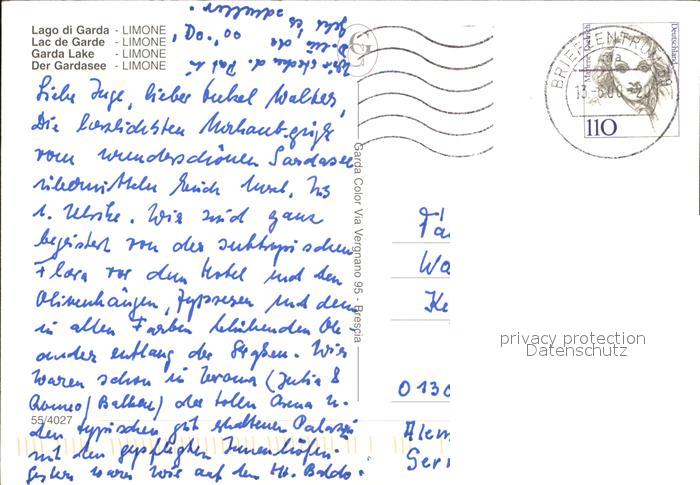 Lago di Garda - LIMONE
Lac de Garde - LIMONE
Garda Lake - LIMONE
Der Gardasee - LIMONE
Liebe Inge, lieber Onkel Walter,
Die herzlichsten Urlaubsgrüße
vom wunderschönen Gardasee
übermitteln Euch
u. Ulrike. Wir sind ganz
begeistert von der subtropischen
Flora vor dem Hotel und den
Olivenhängen, Zypressen und dem
in allen Farben blühenden Ole-
ander entlang der Straßen. Wir
waren schon in Verona (Julia &
Romeo/Balkon) der tollen Arena u.
den typischen gut erhaltenen Palazzi
mit den gepflegten Innenhöfen.
Gestern waren wir auf dem Mt. Baldo.
55/4027
Garda Color Via Vergnano 95 - Brescia
BRIEFZENTRUM
Deutschland
Marlene Dietrich
110
Fa
Wa
Ke
0130
Alem
Ger
privacy protection
Datenschutz